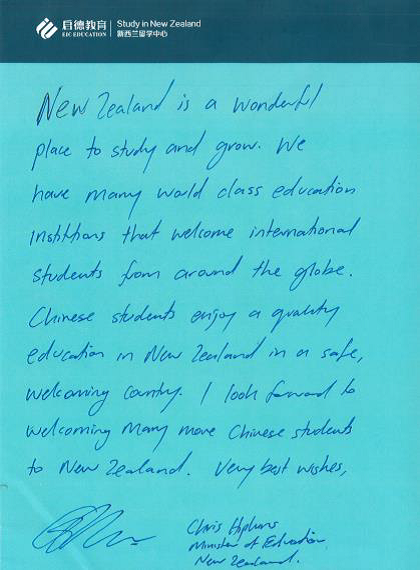 启德教育
EIC EDUCATION
Study in New Zealand
新西兰留学中心
New Zealand is a wonderful
place to study and grow. We
have many world class education
institutions that welcome international
students from around the globe.
Chinese students enjoy a quality
education in New Zealand in a safe,
welcoming country. I look forward to
welcoming many more Chinese students
to New Zealand. Very best wishes,
Chris Hipkins
Minister of Education
New Zealand.